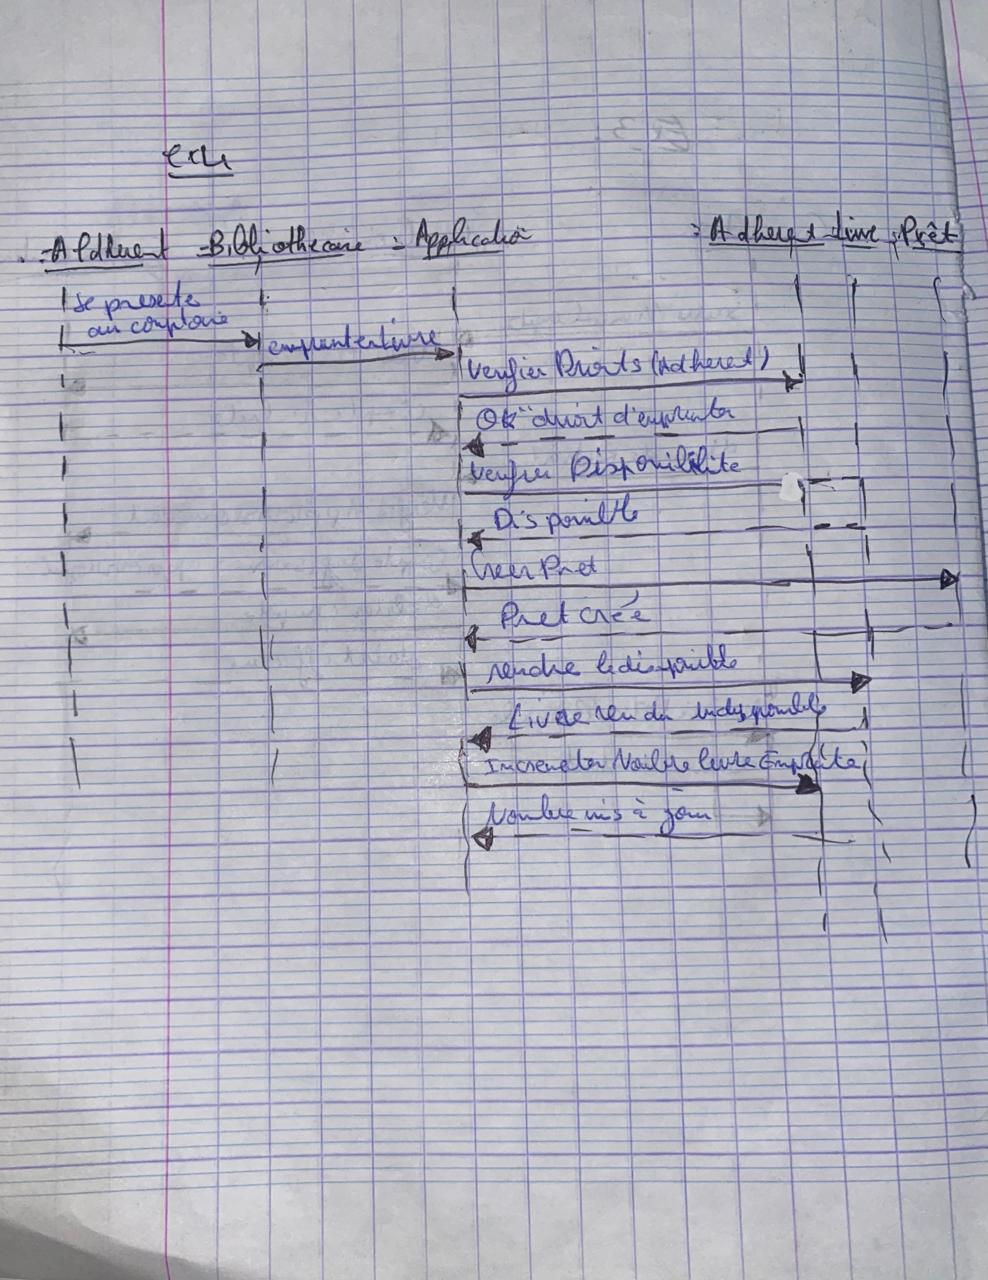 ex4
:Adherent :Bibliothecaire : Application : Adherent :Livre :Prêt
se presente
au comptoire
emprunterlivre
Verifier Droits (Adherent)
Ok "droit d'emprunter
Verifier Disponibilité
Disponible
Creer Pret
Pret crée
rendre
Livre rendu indisponible
Nombre mis à jour